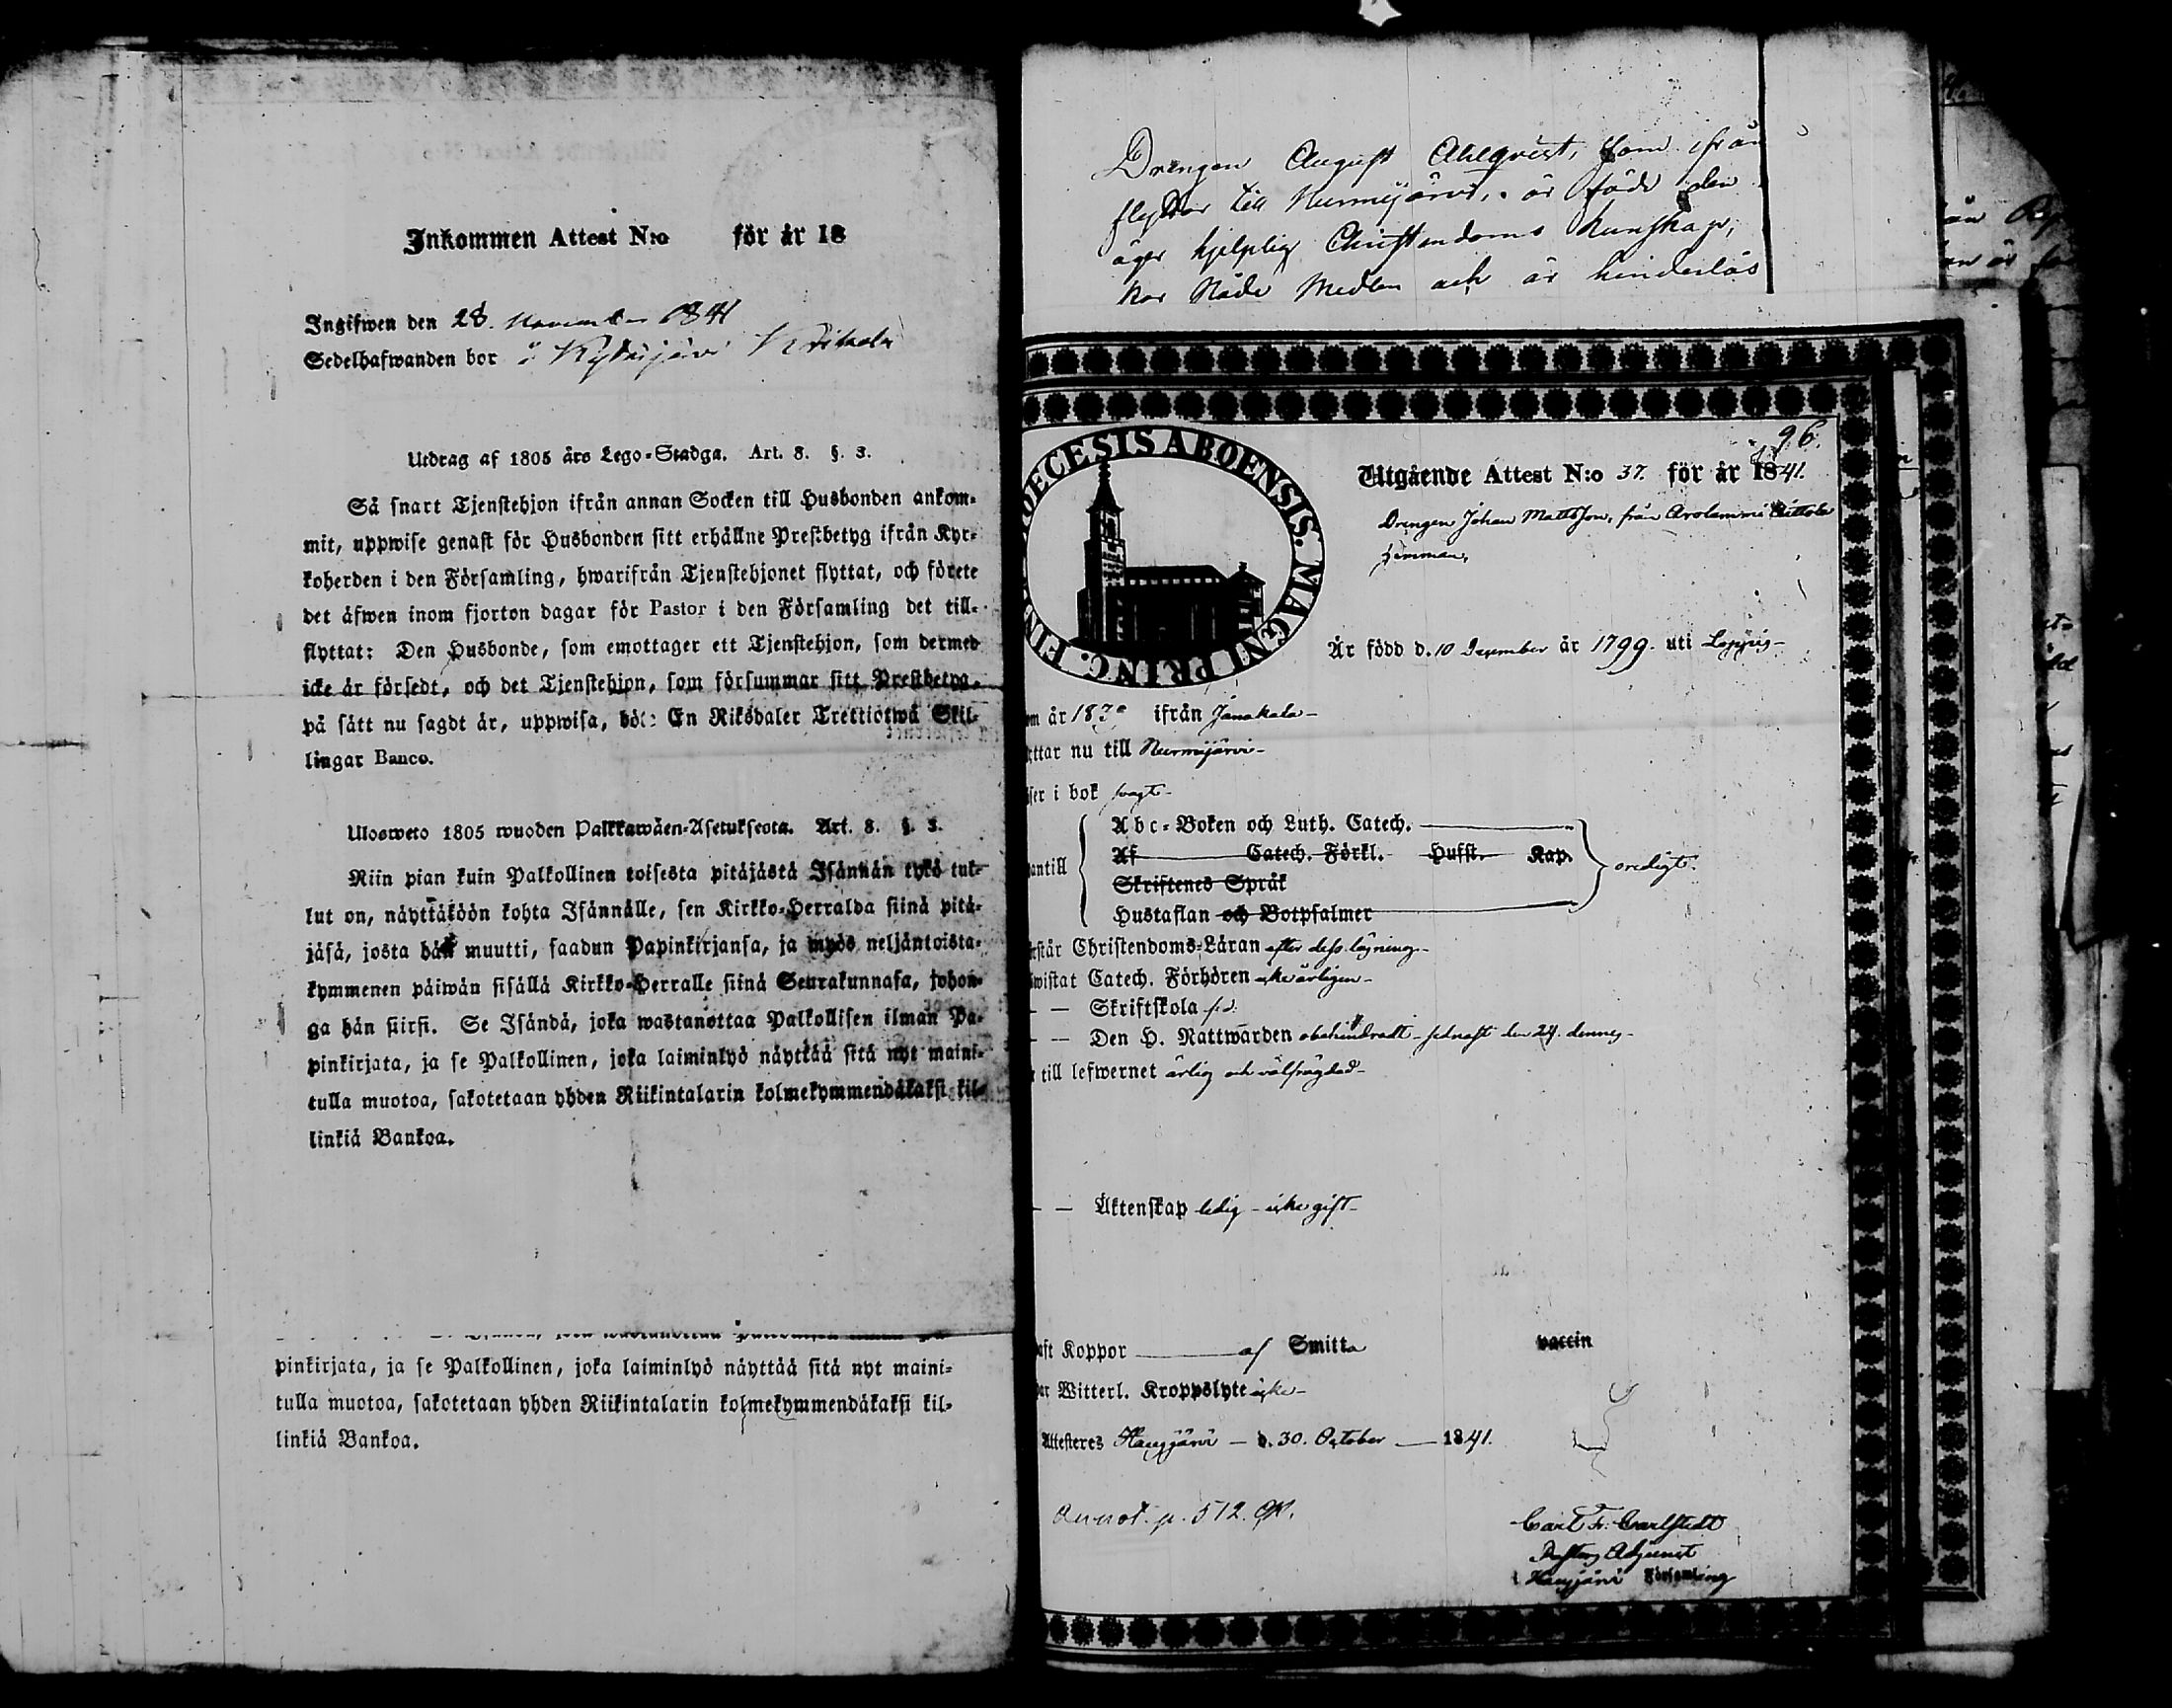 Inkommen Attest N:o för år 18
Ingifwen den 28. November 1841
Sedelhafwanden bor i
Utdrag af 1805 års Lego-Stadga. Art. 8. §. 3.
Så snart Tjenstehjon ifrån annan Socken till Husbonden ankom-
mit, uppwise genast för Husbonden sitt erhållne Prestbetyg ifrån Kyr-
koherden i den Församling, hwarifrån Tjenstehjonet flyttat, och förete
det äfwen inom fjorton dagar för Pastor i den Församling det till-
flyttat: Den Husbonde, som emottager ett Tjenstehjon, som dermed
icke är försedt, och det Tjenstehjon, som försummar sitt Prestbetyg,
på sätt nu sagdt är, uppwisa, böte En Riksdaler Trettiotwå Skil-
lingar Banco.
Ulosweto 1805 wuoden Palkkawäen-Asetuksesta. Art. 8. §. 3.
Niin pian kuin Palkollinen toisesta pitäjästä Isännän tykö tul-
lut on, näyttäköön kohta Isännälle, sen Kirkko-Herralda siinä pitä-
jäsä, josta hän muutti, saadun Papinkirjansa, ja myös neljäntoista-
kymmenen päiwän sisällä Kirkko-Herralle siinä Seurakunnasa, johon-
ga hän siirsi. Se Isändä, joka wastanottaa Palkollisen ilman Pa-
pinkirjata, ja se Palkollinen, joka laiminlyö näyttää sitä nyt maini-
tulla muotoa, sakotetaan yhden Riikintalarin kolmekymmendäkaksi kil-
linkiä Bankoa.
pinkirjata, ja se Palkollinen, joka laiminlyö näyttää sitä nyt maini-
tulla muotoa, sakotetaan yhden Riikintalarin kolmekymmendäkaksi kil-
linkiä Bankoa.
Drengen August Ahlqvist, som ifrån
flyttar till Nurmijärvi, är född den
äger hjelplig Christendoms kunskap,
har Nåde Medlen och är hinderlös
96.
DIOECESIS ABOENSIS. MAGNI PRINC. FIN
Utgående Attest N:o 37. för år 1841.
Drengen Johan Mattsson, från Arolammi
hemman,
Är född d. 10 December år 1799. uti Loppis
m år 1830 ifrån Janakala
ttar nu till Nurmijärvi
ser i bok svagt
Abc-Boken och Luth. Catech.
Af Catech. Förkl. Husst. Kap.
antill Skriftenes Språk oredigt.
Hustaflan och Botpsalmer
rstår Christendoms-Läran efter dess läsning
wistat Catech. Förhören icke årligen
— — Skriftskola
— — Den H. Nattwarden obehindradt sednast den 24. dennes
till lefwernet ärlig och välfrägdad
— — Äktenskap ledig icke gift
aft Koppor af Smitta vaccin
ar Witterl. Kroppslyte icke
Attesteres Hausjärvi d. 30. October 1841.
Annot. p. 512.
Carl Fr. Carlstedt
Pastors Adjunct
i Hausjärvi Församling